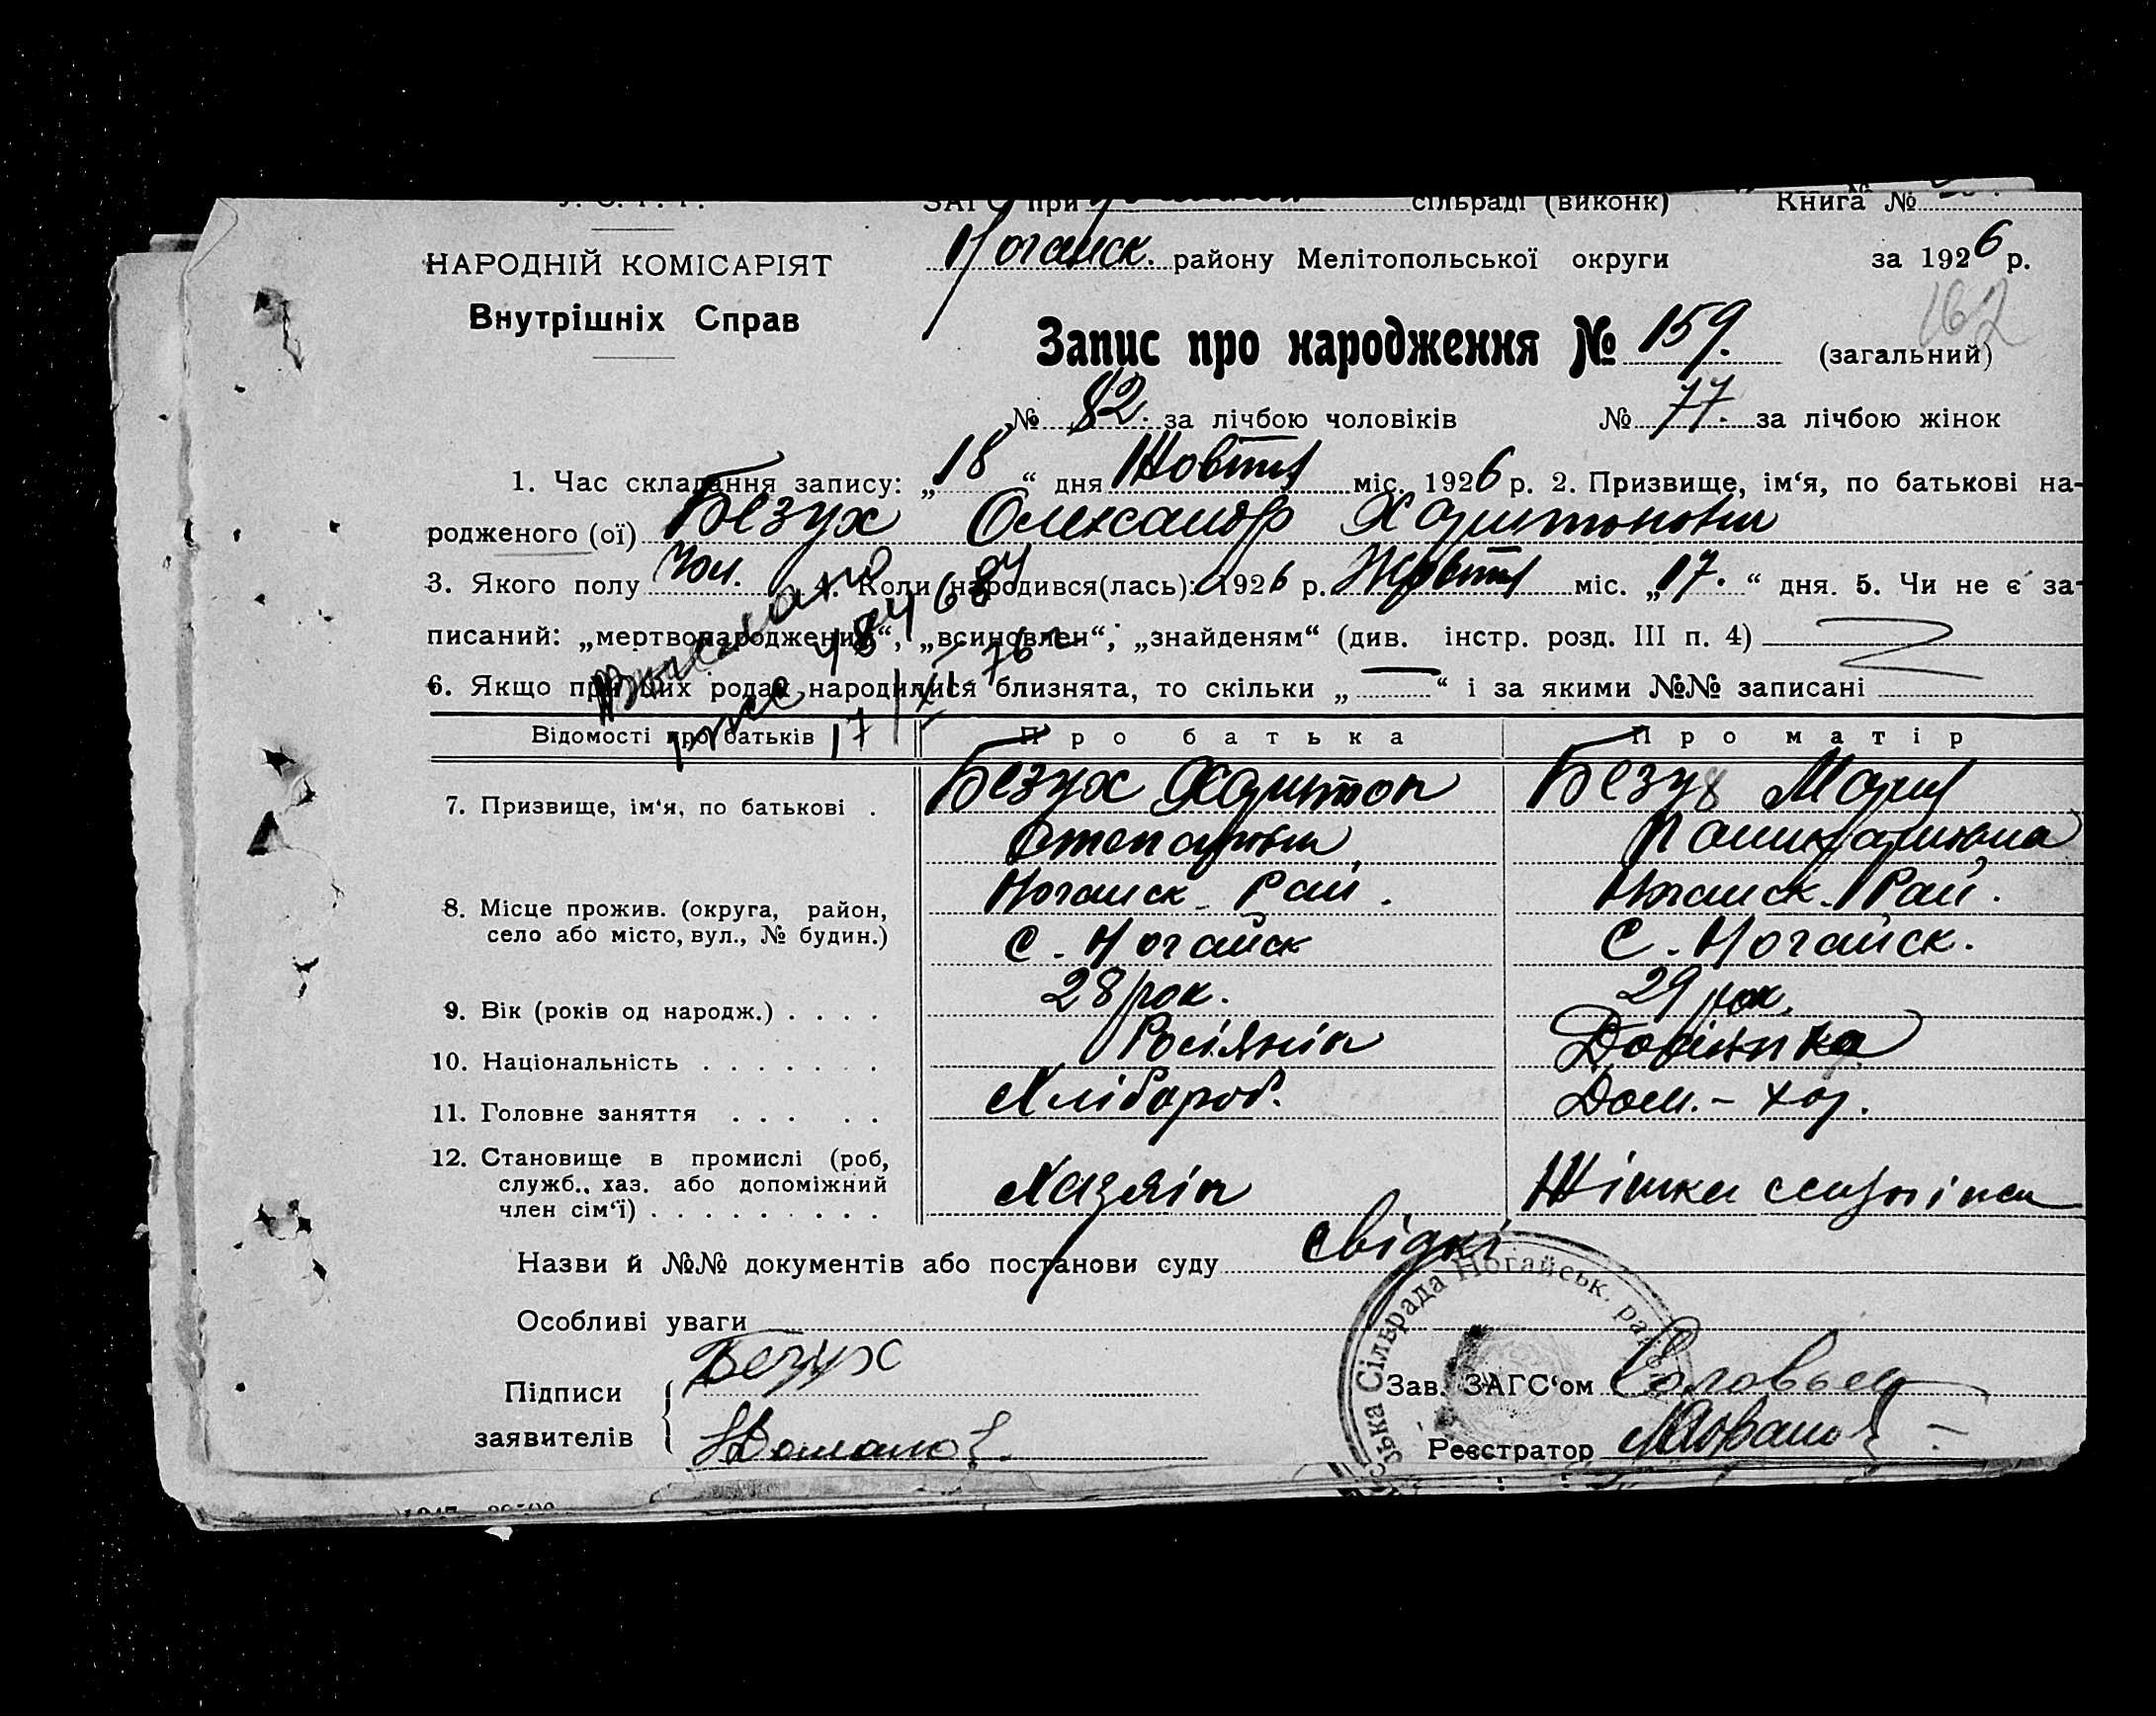 ЗАГС при сільраді (виконк) Книга №
НАРОДНІЙ КОМІСАРІЯТ
Ногайск. району Мелітопольської округи за 1926 р.
Внутрішніх Справ
162
Запис про народження № 159. (загальний)
№ 82. за лічбою чоловіків № 77. за лічбою жінок
1. Час складання запису: „18“ дня Жовтня міс. 1926 р. 2. Призвище, ім‘я, по батькові на-
родженого (ої) Безух Олександр Харитонович
3. Якого полу Чол. 4. Коли народився(лась): 1926 р. Жовтня міс. „17.“ дня. 5. Чи не є за-
писаний: „мертвонароджений“, „всиновлен“, „знайденям“ (див. інстр. розд. III п. 4)
6. Якщо при цих родах народилися близнята, то скільки „—“ і за якими №№ записані
Відомості про батьків Про батька Про матір
7. Призвище, ім‘я, по батькові . Безух Харитон Безух Мария
Степанович
8. Місце прожив. (округа, район, Ногайск Рай. Ногайск. Рай.
село або місто, вул., № будин.) С. Ногайск С. Ногайск.
9. Вік (років од народж.) . . . . 28 рок. 29 рок.
10. Національність . . . . . . . Росіянін
11. Головне заняття . . . . . Хлібороб. Дом. - хоз.
12. Становище в промислі (роб, служб., хаз. або допоміжний член сім‘ї) . . . . . . . . . Хазяін Жінка
Назви й №№ документів або постанови суду свідкі
Особливі уваги
Підписи заявителів Безух
Зав. ЗАГС‘ом
Реєстратор
Сілврада Ногайськ.